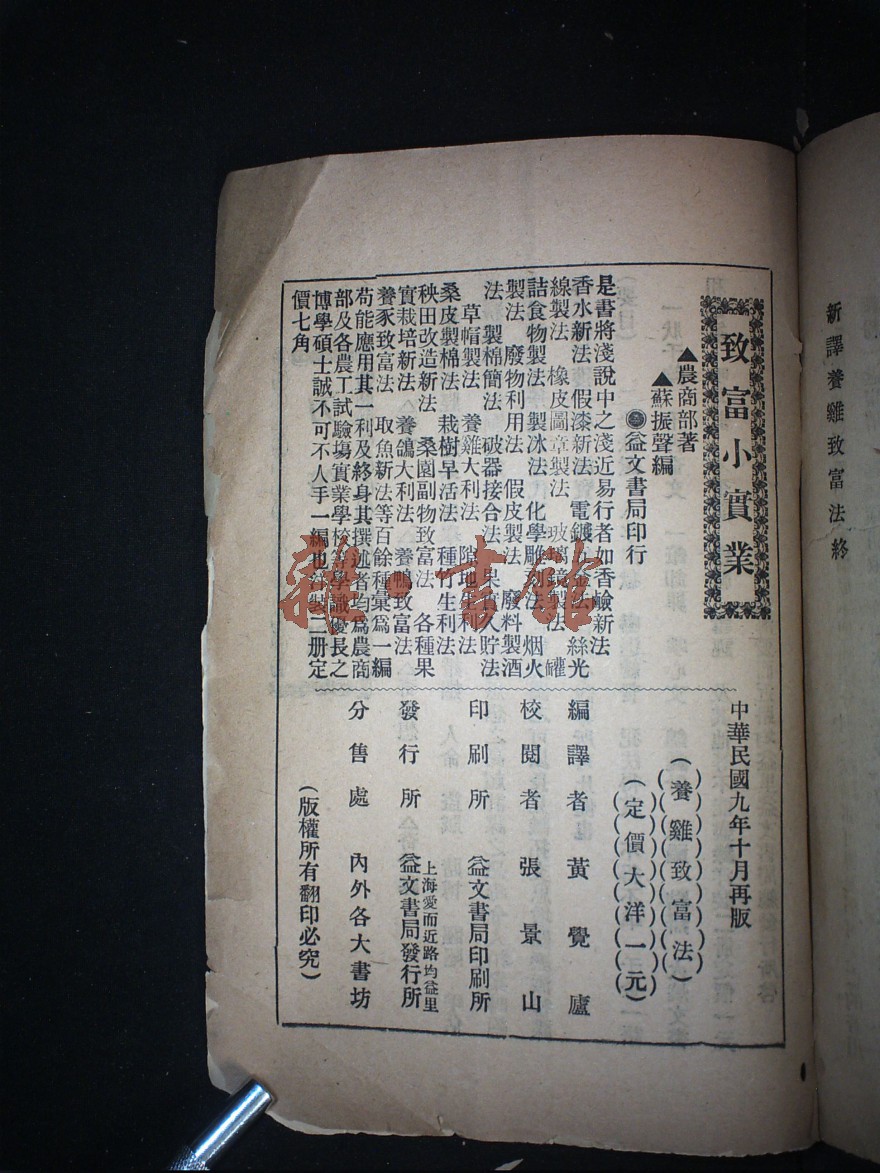 新譯養雞致富法終
致富小實業
▲農商部著
▲蘇振聲編
益文書局印行
是書將淺說中之淺近易行者如香鹼新法
香水新法 假漆新法 電鍍金法 絲光
線製法 橡皮圖章製法 玻璃鏡製法 罐
詰食物製法 製冰法 化學雕刻法 烟火
製法 廢物利用法 假皮製法 廢料製酒
法 製棉簡法 破器接合法 果實久貯法
草帽製法 養雞大利法 隙地生利法
桑皮製棉法 栽樹早活法 種竹生利法
秧田改造新法 桑園副物致富法 各種果
實栽培新法 養鴿大利法 養鴨致富法
養豕致富法 取魚新法等百餘種彙爲一編
苟能應用其一利及終身其撰述者均爲農商
部及各農工試驗塲實業學校等學識優長之
博學碩士誠不可不人手一編也 裝二册定
價七角
中華民國九年十月再版
(養雞致富法)
(定價大洋一元)
編譯者 黃覺廬
校閱者 張景山
印刷所 益文書局印刷所
上海愛而近路均益里
發行所 益文書局發行所
分售處 內外各大書坊
(版權所有翻印必究)
雜·書館